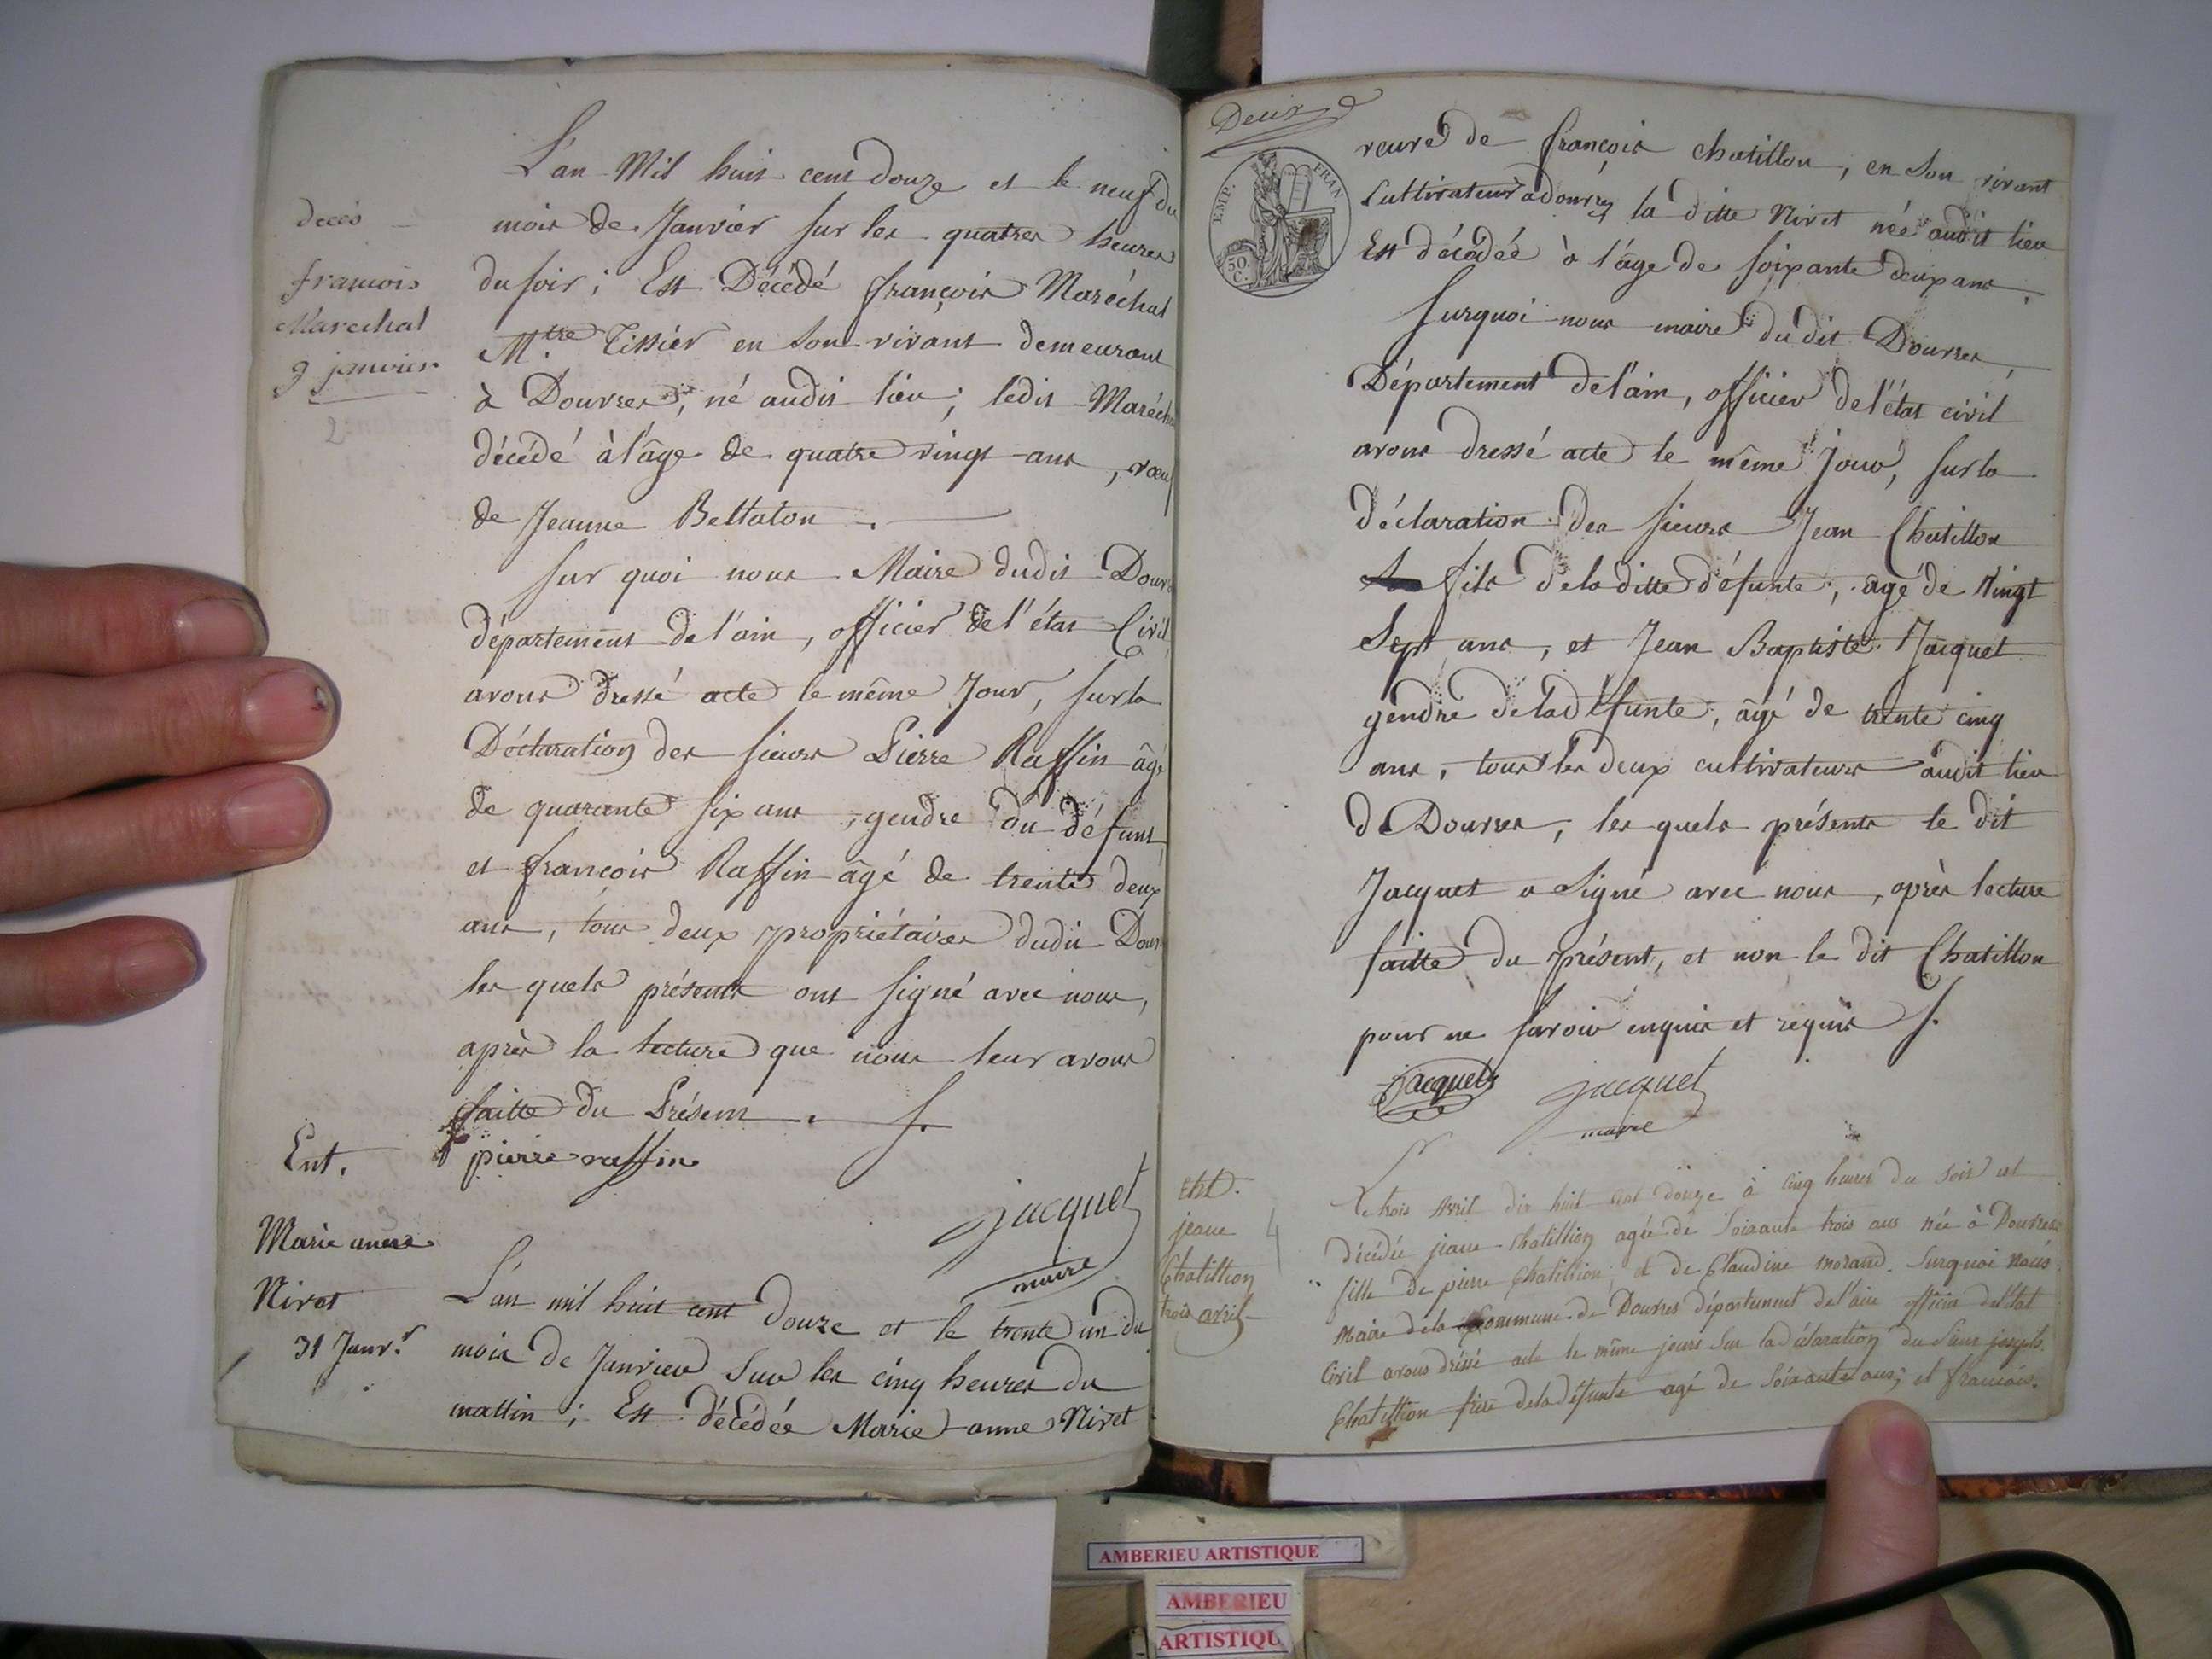 L'an Mil huit cent douze et le neuf du
mois de Janvier sur les quatres heures
du soir; Est Décédé françois Maréchal
M.tre Tissier en son vivant demeurant
à Douvres, né audit lieu; ledit Maréchal
décédé à l'âge de quatre vingt ans, veuf
de Jeanne Bettaton.
Sur quoi nous Maire dudit Douvres
département de l'ain, officier de l'état Civil
avons dressé acte le même Jour, sur la
Déclaration des sieurs Pierre Raffin âgé
de quarante six ans, gendre du défunt
et françois Raffin âgé de trente deux
ans, tous deux propriétaires dudit Douvres
les quels présents ont signé avec nous,
après la lecture que nous leur avons
faitte du Présent.
pierre raffin
jacquet
maire
décès
francois
Marechal
9 janvier
2
Ent.
Marie anne
Nivet
31 Janv.r
L'an mil huit cent Douze et le trente un du
mois de Janvier Sur les cinq heures du
mattin; Est décédée Marie anne Nivet
Deux
EMP. FRAN.
50.
C.
veuve de françois chatillon, en son vivant
Cultivateur a douvres la ditte Nivet née audit lieu
Est décédée à l'âge de soixante deux ans.
Surquoi nous maire du dit Douvres,
Département de l'ain, officier de l'état civil
avons dressé acte le même jour, sur la
déclaration des sieurs Jean Chatillon
fils de la ditte défunte, agé de Vingt
Sept ans, et Jean Baptiste Jacquet
gendre de la défunte, âgé de trente cinq
ans, tous les deux cultivateurs audit lieu
de Douvres, les quels présents le dit
Jacquet a Signé avec nous, après lecture
faitte du présent, et non le dit Chatillon
pour ne savoir enquis et requis
jacquet jacquet
maire
Ent.
jeane
Chatillion
trois avril
4
Le trois Avril dix huit cent douze à cinq heures du soir est
décédée jeane Chatillion agée de Soixante trois ans née à Douvres
fille de pierre Chatillion, et de Claudine morand. Surquoi nous
Maire de la Commune de Douvres département de l'ain officier de l'état
Civil avons dréssé acte le même jours Sur la déclaration du Sieur joseph
Chatillion frère de la défunte agé de Soixante ans, et francois
AMBERIEU ARTISTIQUE
AMBERIEU
ARTISTIQU